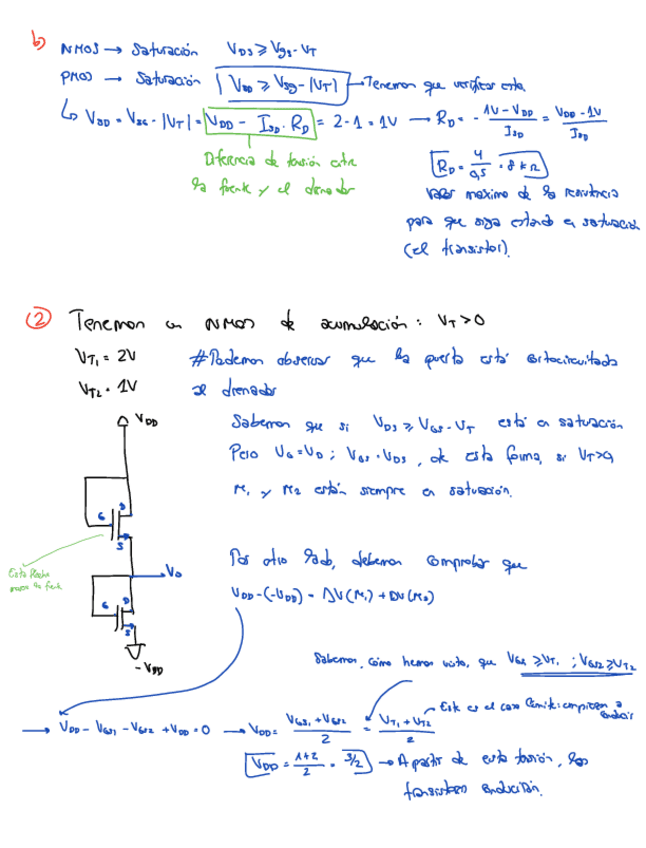 b) NMOS → Saturación V_DS ≥ V_GS - V_T
PMOS → Saturación | V_SD ≥ V_SG - |V_T| → Tenemos que verificar esta
↳ V_SD = V_SG - |V_T| = V_DD - I_SD · R_D = 2 - 1 = 1V → R_D = - (1V - V_DD)/I_SD = (V_DD - 1V)/I_SD
Diferencia de tensión entre
la fuente y el drenador
R_D = 4/0,5 = 8 kΩ
Valor máximo de la resistencia
para que siga estando en saturación
(el transistor).
② Tenemos un NMOS de acumulación: V_T > 0
V_T1 = 2V # Podemos observar que la puerta está cortocircuitada
V_T2 = 1V al drenador
V_DD
Sabemos que si V_DS ≥ V_GS - V_T está en saturación
Pero V_G = V_D ; V_GS = V_DS, de esta forma, si V_T > 0,
M_1 y M_2 están siempre en saturación.
G D
S
Esta flecha
marca la fuente
V_0
Por otro lado, debemos comprobar que
V_DD - (-V_DD) = ΔV(M_1) + ΔV(M_2)
G D
S
-V_DD
Sabemos, como hemos visto, que V_GS1 ≥ V_T1 ; V_GS2 ≥ V_T2
→ V_DD - V_GS1 - V_GS2 + V_DD = 0 → V_DD = (V_GS1 + V_GS2)/2 = (V_T1 + V_T2)/2
Este es el caso límite: empiezan a
conducir
V_DD = (1+2)/2 = 3/2 → A partir de esta tensión, los
transistores conducirán.